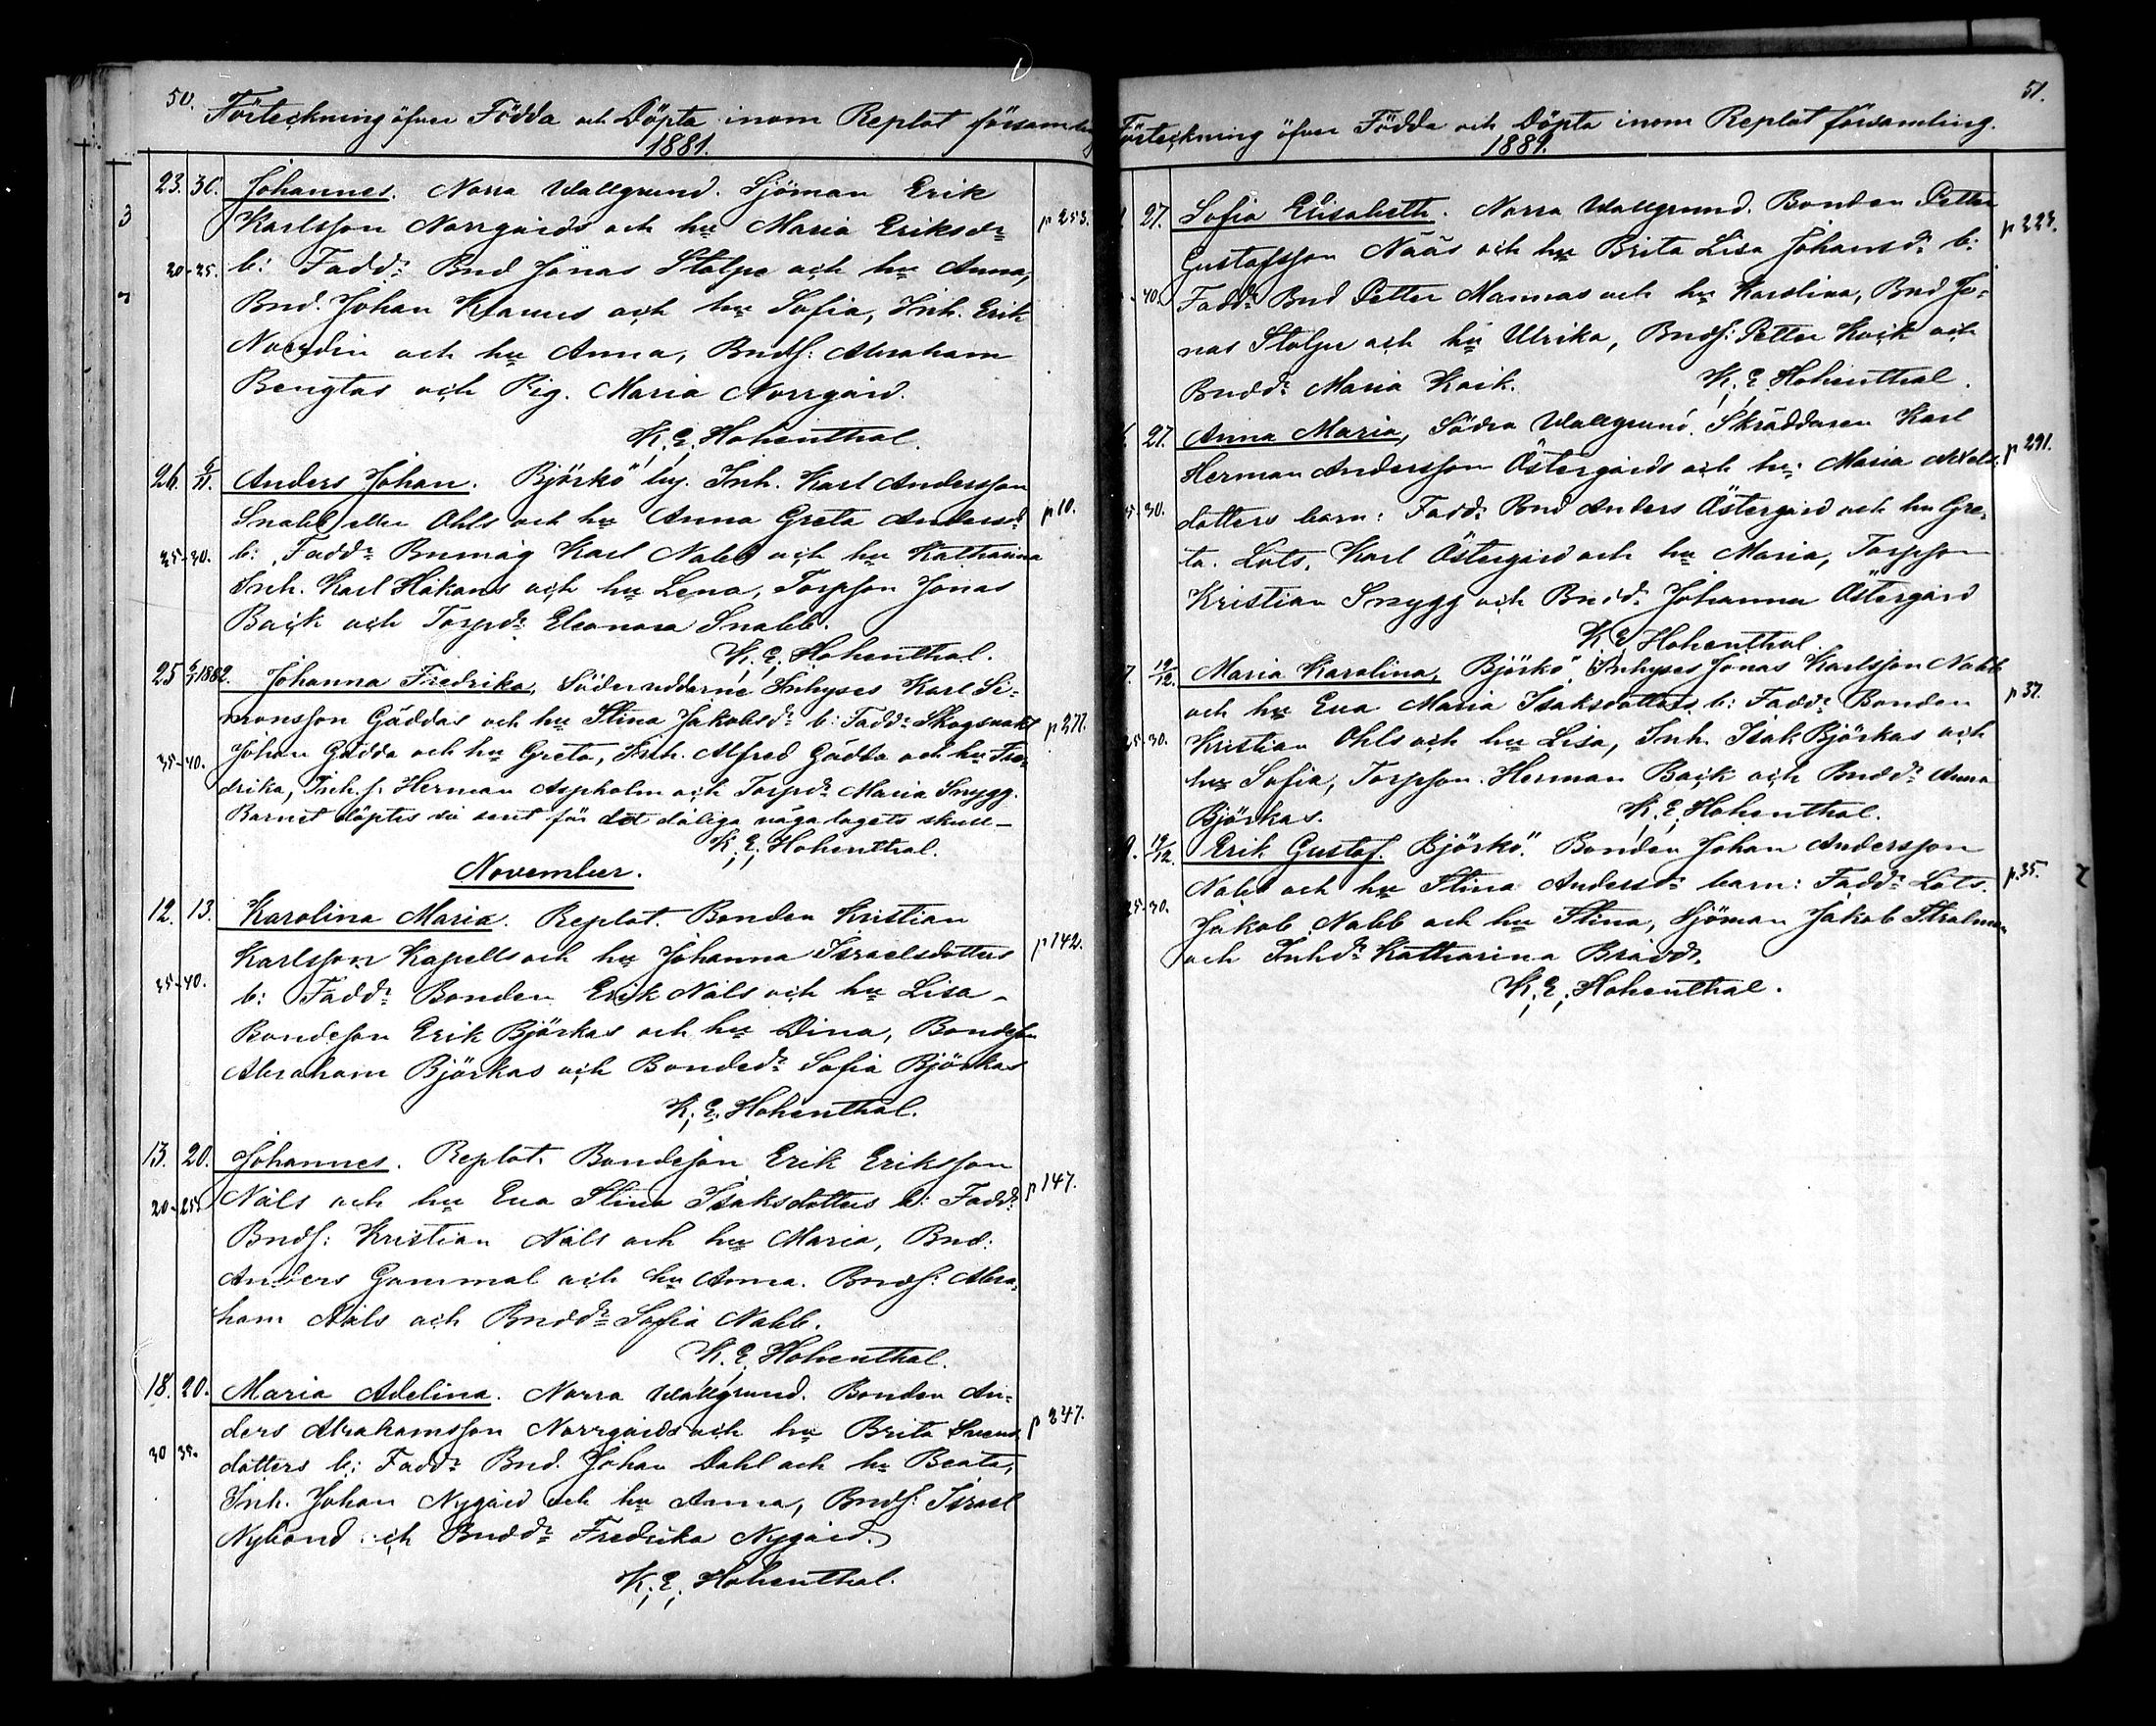 50.
Förteckning öfver Födda och Döpta inom Replot församling
1881.
23. 30. Johannes. Norra Wallgrund. Sjöman Erik
Karlsson Norrgårds och hu Maria Eriksdr p 253.
20-25. b: Faddr Bnd Jonas Stolpe och hu Anna,
Bnd. Johan Klauus och hu Sofia, Inh. Erik
Nordin och hu Anna, Bnds: Abraham
Bengtas och Pig. Maria Norrgård.
K. E. Hohenthal.
26. 6/11. Anders Johan. Björkö by. Inh. Karl Andersson
Snabb eller Ohls och hu Anna Greta Andersd p 10.
25-30. b: Faddr Bnmåg Karl Nabb och hu Katharina
Inh. Karl Håkans och hu Lena, Torpson Jonas
Back och Torpdr Eleonora Snabb.
K. E. Hohenthal.
25 1882. Johanna Fredrika, Söderuddarne Inhyses Karl Si-
monsson Gäddas och hu Stina Jakobsdr b: Faddr Skogsvakt p 271.
35-40. Johan Gädda och hu Greta, Inh. Alfred Gädda och hu Fre-
drika, Inh. s. Herman Aspholm och Torpdr Maria Snygg.
Barnet döptes så sent för det dåliga väga lagets skull—
K. E. Hohenthal.
November.
12. 13. Karolina Maria. Replot. Bonden Kristian
Karlsson Kapells och hu Johanna Israelsdotters p 142.
35-40. b: Faddr Bonden Erik Nåls och hu Lisa -
Bondeson Erik Björkas och hu Dina, Bondeson
Abraham Björkas och Bondedr Sofia Björkas
K. E. Hohenthal.
13. 20. Johannes. Replot. Bondeson Erik Eriksson
20-25. Nåls och hu Eva Stina Isaksdotters b: Faddr p 147.
Bnds: Kristian Nåls och hu Maria, Bnd:
Anders Gammal och hu Anna. Bnds: Abra-
ham Nåls och Bnddr Sofia Nabb.
K. E. Hohenthal.
18. 20. Maria Adelina. Norra Wallgrund. Bonden An-
ders Abrahamsson Norrgårds och hu Brita Svens p 247.
30 35. dotters b: Faddr Bnd. Johan Dahl och hu Beata,
Inh. Johan Nygård och hu Anna, Bnds: Israel
Nybond och Bnddr Fredrika Nygård.
K. E. Hohenthal.
51.
Förteckning öfver Födda och Döpta inom Replot församling.
1881.
27. Sofia Elisabeth. Norra Wallgrund. Bonden Petter
Gustafsson Nääs och hu Brita Lisa Johansdr b: p 223.
40. Faddr Bnd Petter Mannas och hu Karolina, Bnd Jo-
nas Stolpe och hu Ulrika, Bnds: Petter Kock och
Bnddr Maria Kock. K. E. Hohenthal.
27. Anna Maria, Södra Wallgrund. Skräddaren Karl
Herman Andersson Östergårds och hu: Maria p 291.
30. dotters barn: Faddr Bnd Anders Östergård och hu Gre-
ta. Lots. Karl Östergård och hu Maria, Torpson
Kristian Snygg och Bndd. Johanna Östergård
K E Hohenthal
7. 19/12. Maria Karolina, Björkö. Inhyses Jonas Karlsson Nabb
och hu Eva Maria Isaksdotters b: Faddr Bonden p 37.
25-30. Kristian Ohls och hu Lisa, Inh. Isak Björkas och
hu Sofia, Torpson. Herman Back och Bnddr Anna
Björkas. K. E. Hohenthal.
9. 19/12. Erik Gustaf. Björkö. Bonden Johan Andersson
Nabb och hu Stina Andersdr barn: Faddr Lots. p. 35.
25-30. Jakob Nabb och hu Stina, Sjöman Jakob Stolman
och Inhdr Katharina Brådd.
K. E. Hohenthal.